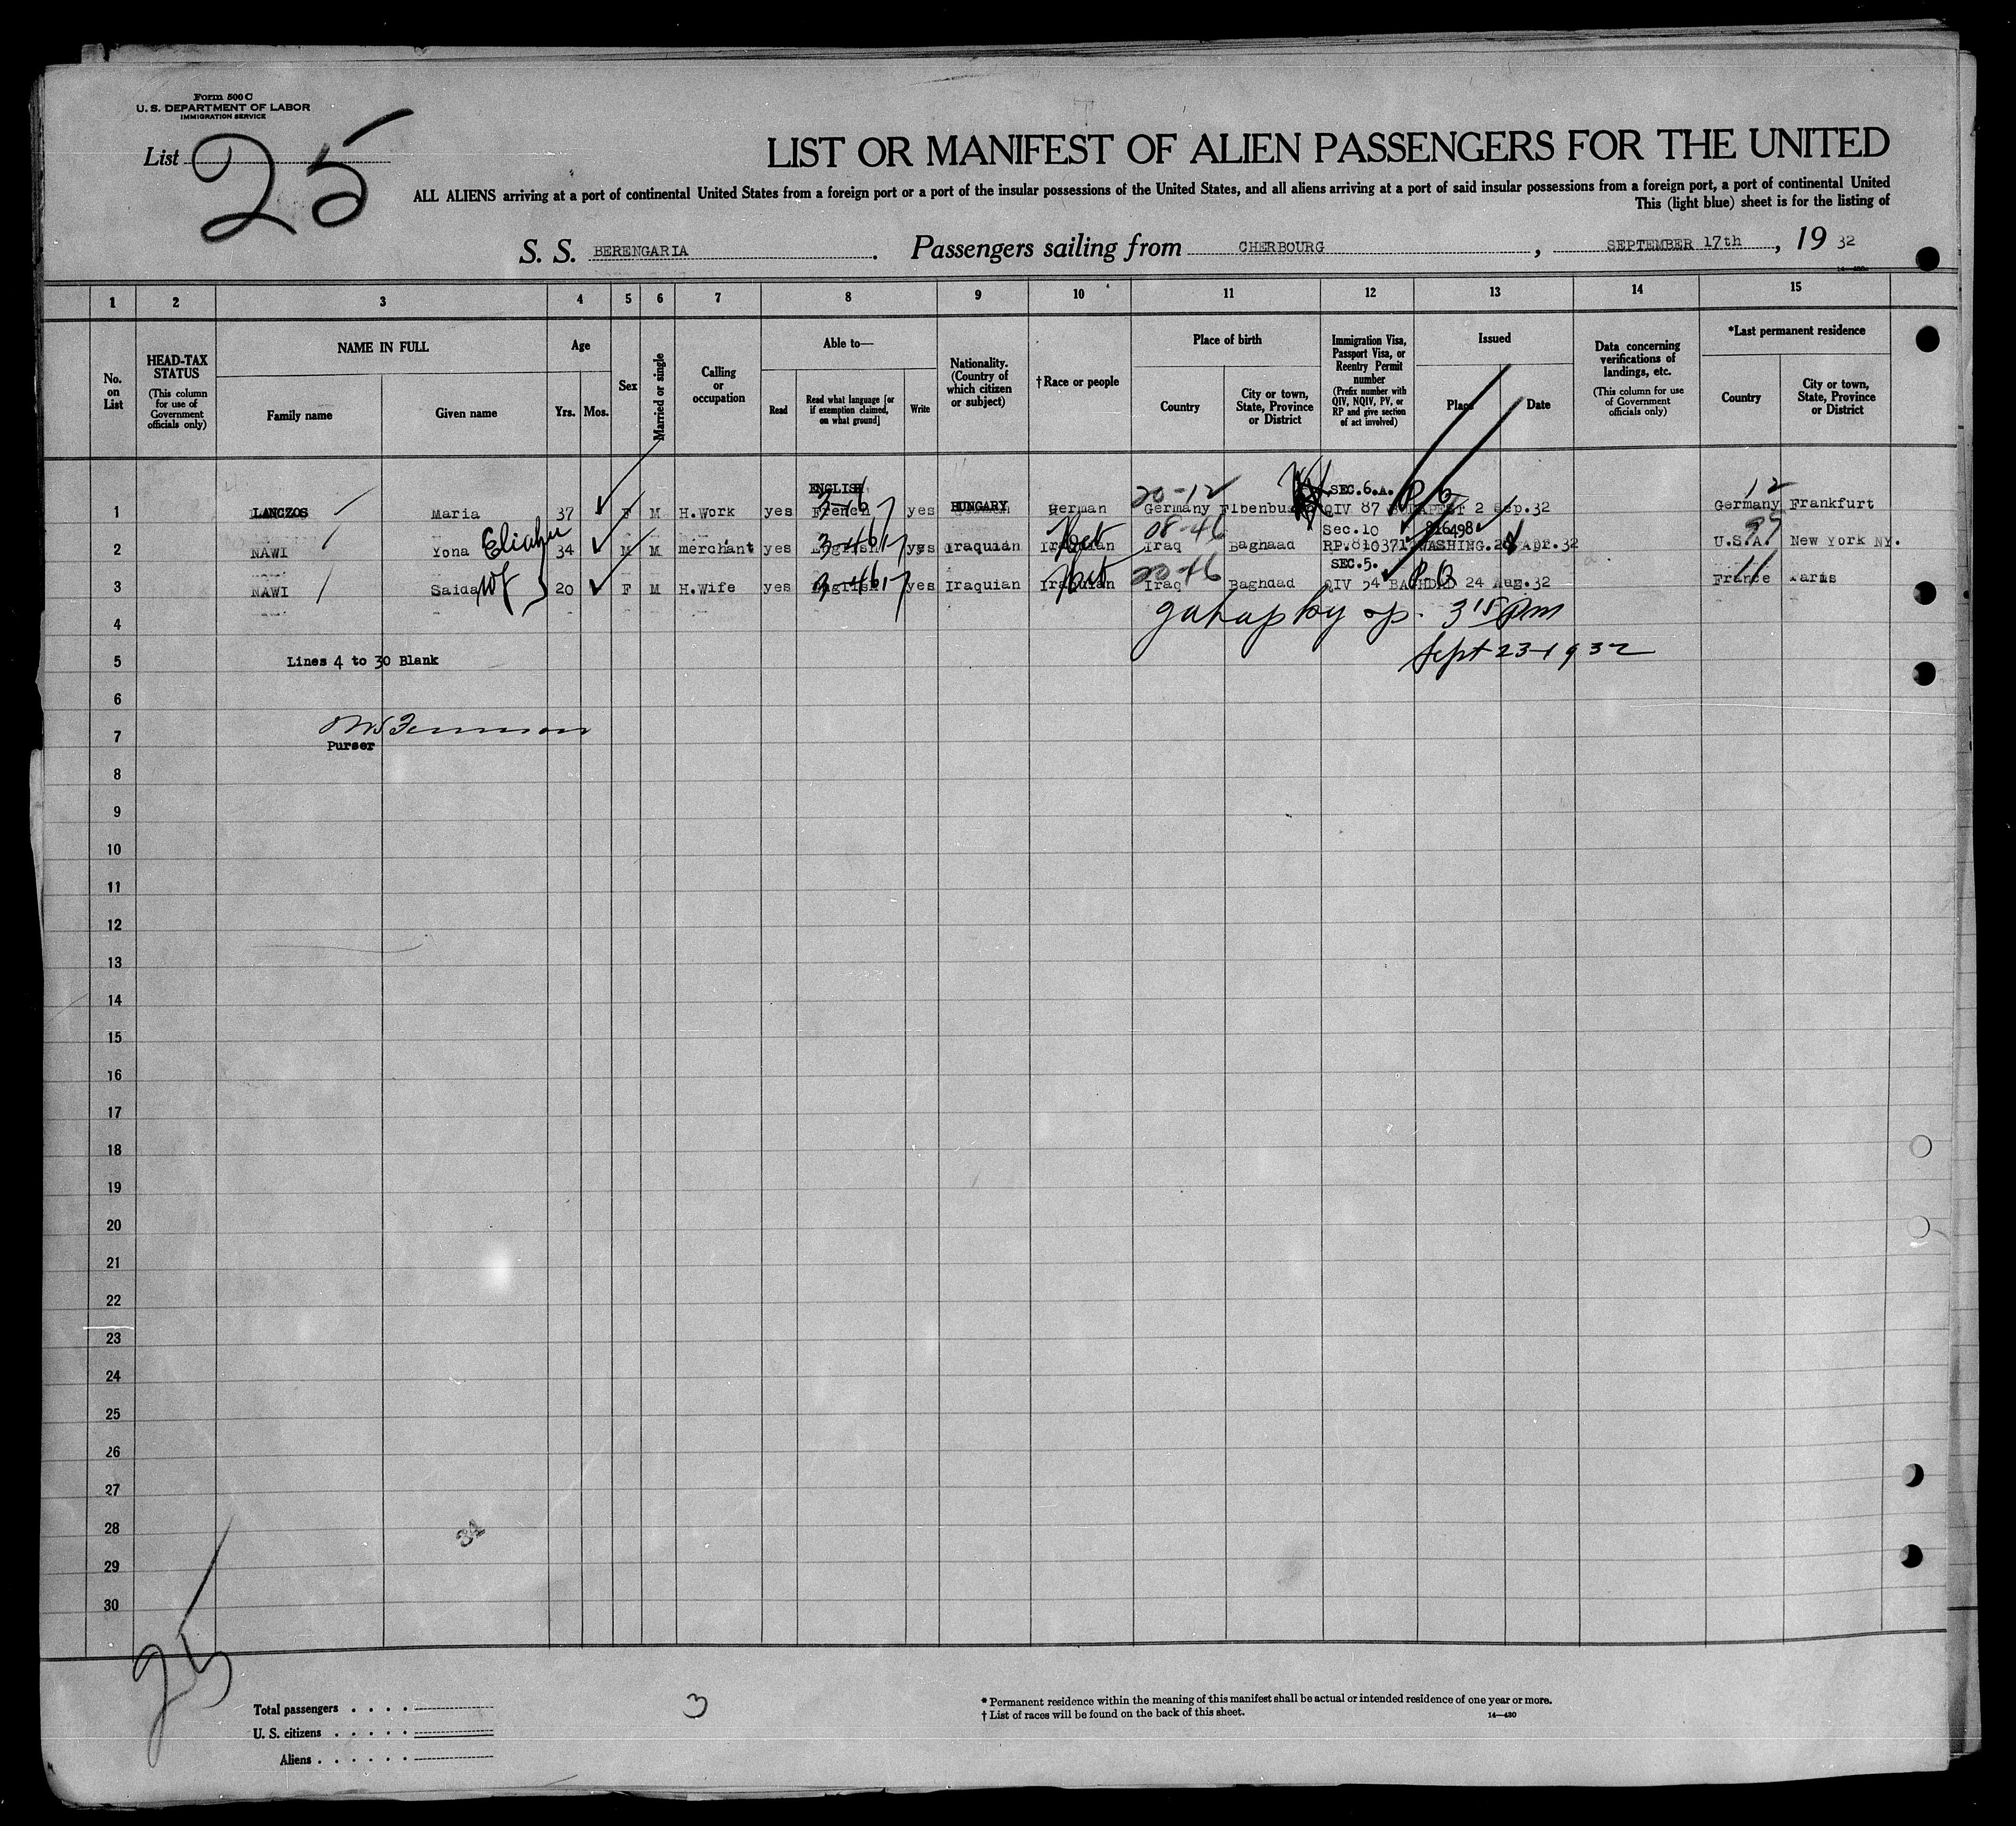 Form 500 C
U. S. DEPARTMENT OF LABOR
IMMIGRATION SERVICE
List 25
LIST OR MANIFEST OF ALIEN PASSENGERS FOR THE UNITED
ALL ALIENS arriving at a port of continental United States from a foreign port or a port of the insular possessions of the United States, and all aliens arriving at a port of said insular possessions from a foreign port, a port of continental United
This (light blue) sheet is for the listing of
S. S. BERENGARIA. Passengers sailing from CHERBOURG, SEPTEMBER 17th, 19 32
1 2 3 4 5 6 7 8 9 10 11 12 13 14 15
No. on List
HEAD-TAX STATUS (This column for use of Government officials only)
NAME IN FULL
Family name Given name
Age
Yrs. Mos.
Sex
Married or single
Calling or occupation
Able to—
Read
Read what language [or if exemption claimed, on what ground]
Write
Nationality. (Country of which citizen or subject)
†Race or people
Place of birth
Country
City or town, State, Province or District
Immigration Visa, Passport Visa, or Reentry Permit number (Prefix number with QIV, NQIV, PV, or RP and give section of act involved)
Issued
Place Date
Data concerning verifications of landings, etc. (This column for use of Government officials only)
*Last permanent residence
Country
City or town, State, Province or District
ENGLISH 20-12 SEC.6.A. 12
1 LANCZOS Maria 37 F M H.Work yes French yes HUNGARY German Germany QIV 87 BUDAPEST 2 Sep.32 Germany Frankfurt
Eliahu 08-46 Sec.10 816498
2 NAWI Yona 34 M M merchant yes English yes Iraquian Iraquian Iraq Baghaad RP.810371 WASHING. Apr.32 U.S.A. New York NY.
wf 20-46 SEC.5.
3 NAWI Saida 20 F M H.Wife yes English yes Iraquian Iraquian Iraq Baghdad QIV 54 BAGHDAD 24 Aug.32 France Paris
4 by op. 3 15 Pm
5 Lines 4 to 30 Blank Sept 23-1932
6
7
Purser
8
9
10
11
12
13
14
15
16
17
18
19
20
21
22
23
24
25
26
27
28
29
30
25
Total passengers
3
U. S. citizens
Aliens
* Permanent residence within the meaning of this manifest shall be actual or intended residence of one year or more.
† List of races will be found on the back of this sheet.
14—430